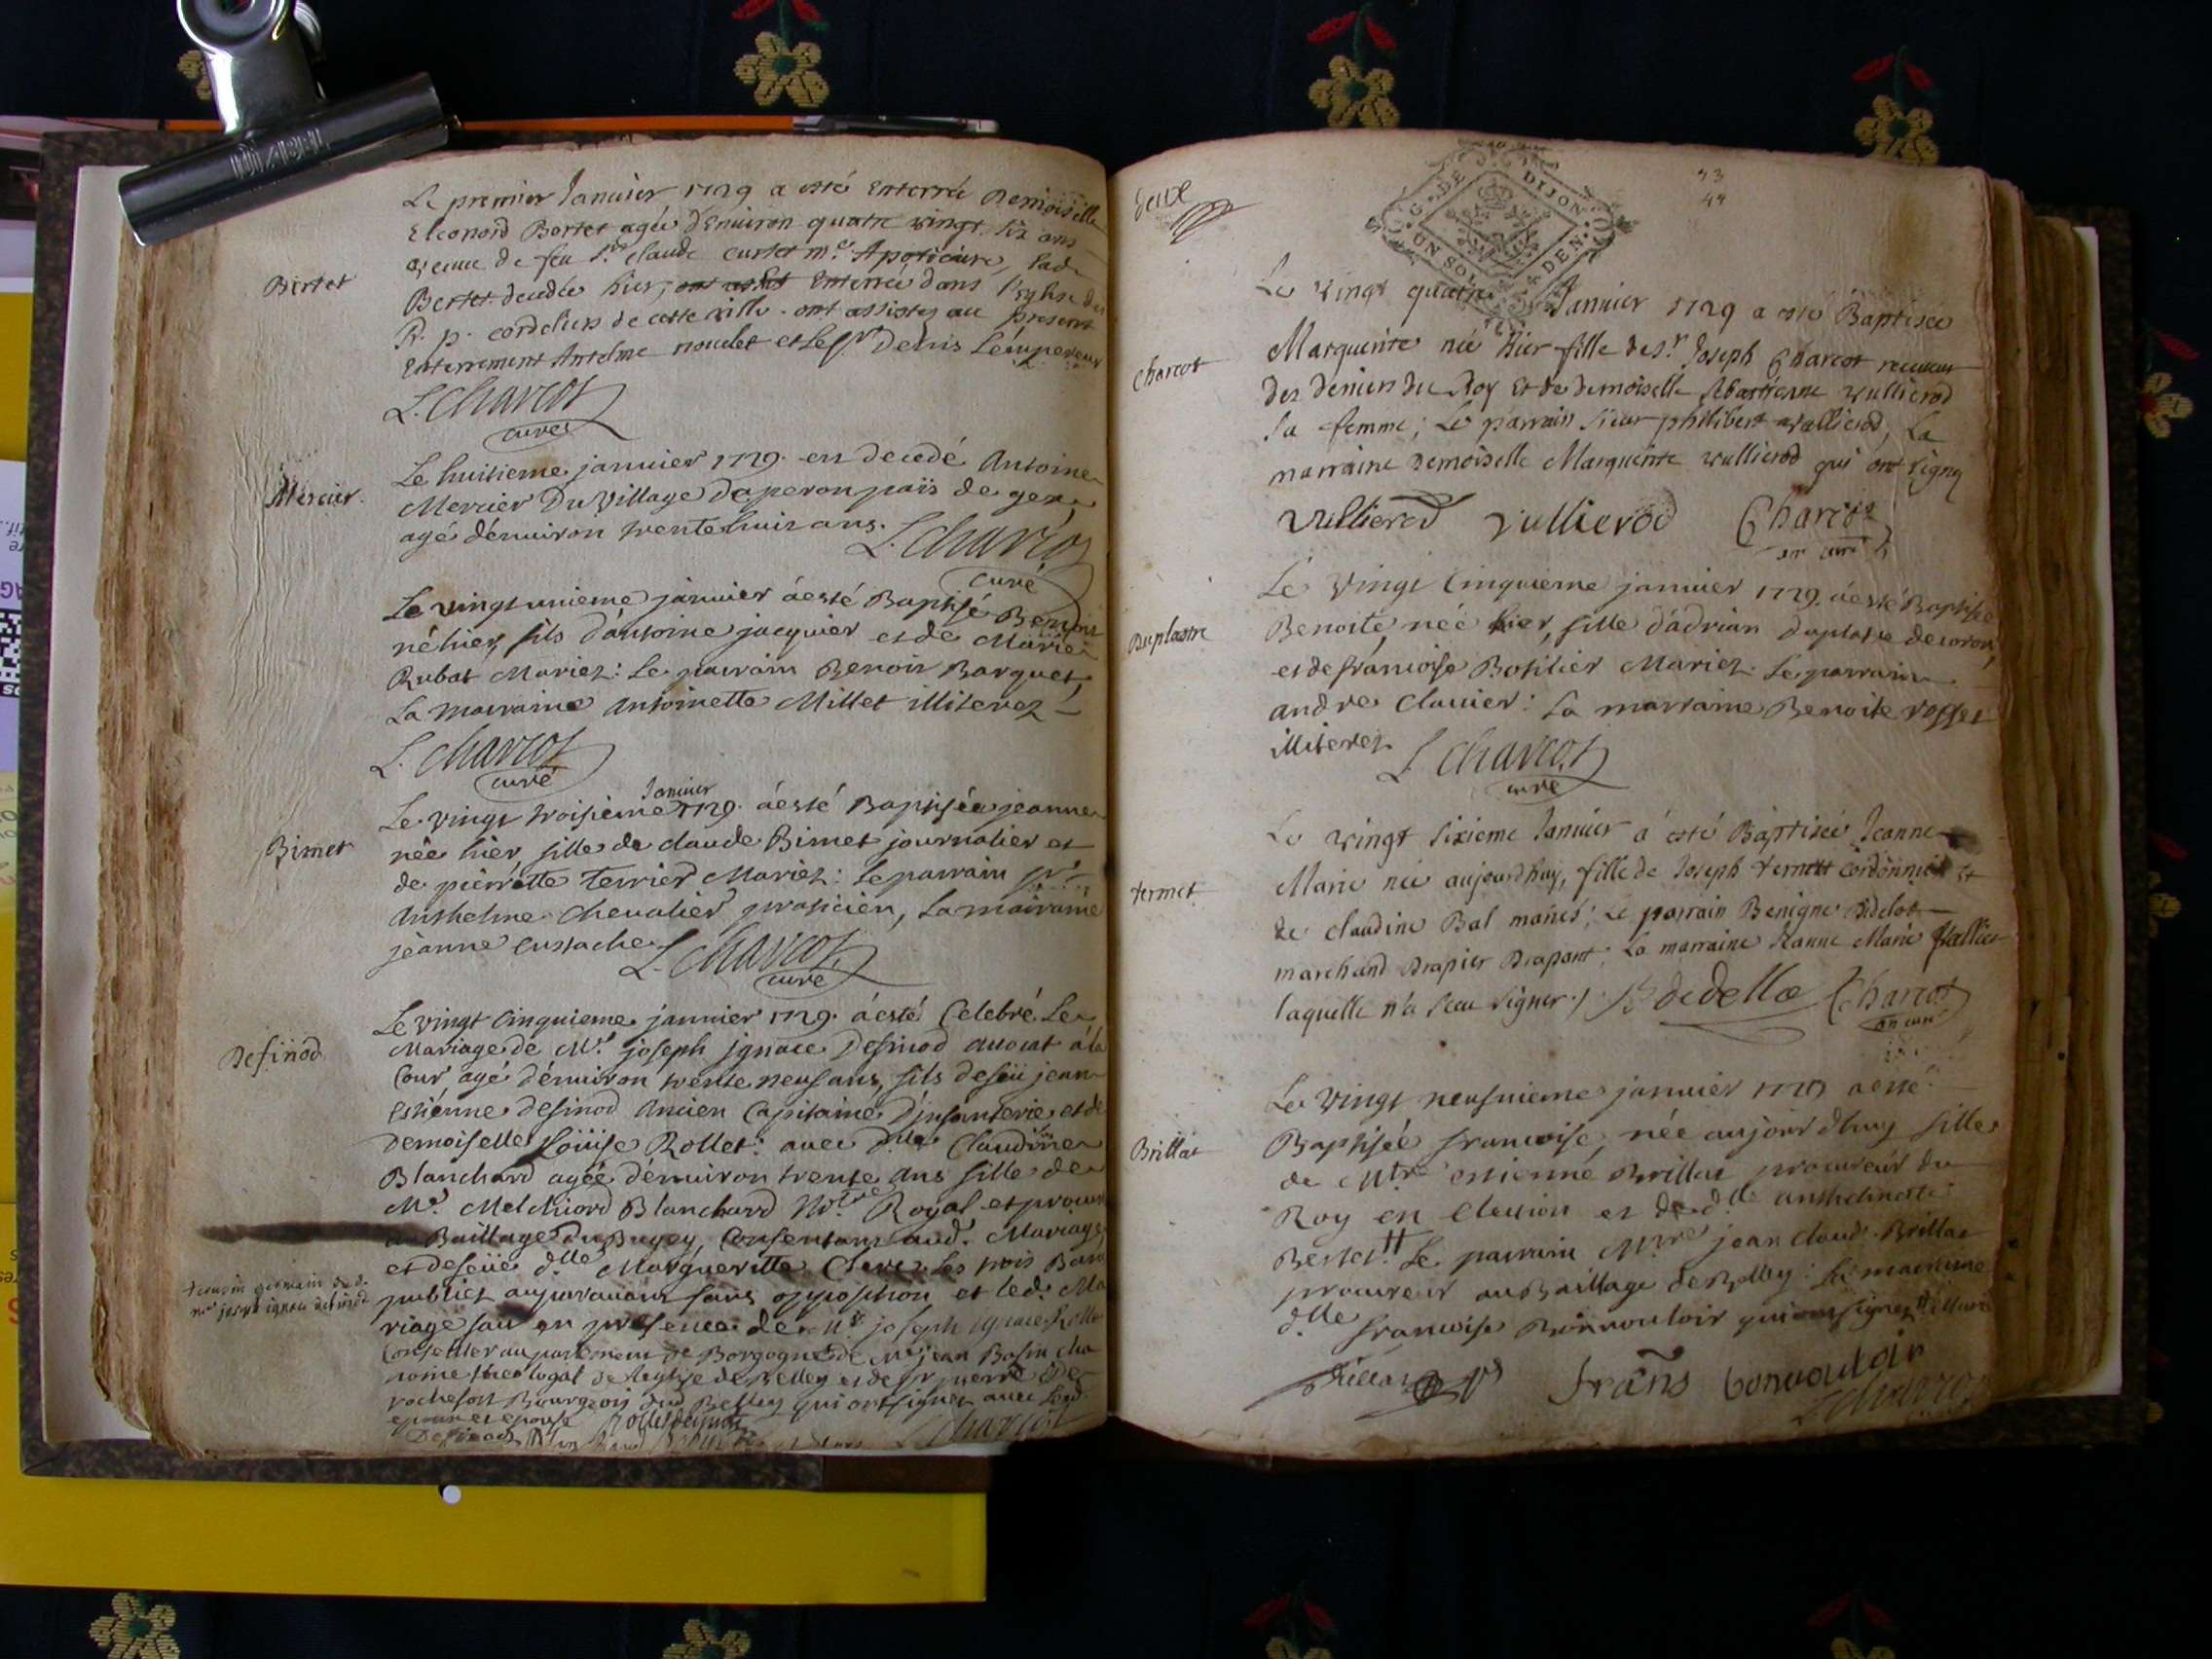 Le premier Januier 1729 a esté Enterrée Demoiselle
Eleonord Bertet agée d'Enuiron quatre vingt six ans
veuue de feu Sr. Claude curtet me. Apoticaire, lade
Bertet
Bertet decedée hier, Enterrée dans l'Eglise des
R. p. cordeliers de cette ville. ont assistez au present
Enterrement Antelme noudet et le Sr Denis Lémpereur
L. Charcot
curé
Le huitieme januier 1729. est decedé Antoine
Mercier.
Mercier Du Village daperon païs de gex
agé d'énuiron trente huit ans. L. Charcot
curé
Le vingt unieme januier à esté Baptisé Benoit
né hier, fils d'antoine jacquier et de Marie
Rubat Mariez: Le parrain Benoit Barquet,
La Marraine Antoinette Millet illiterez
L. Charcot
curé
Januier
Le vingt troisieme 1729. à esté Baptisée jeanne
Bimet
née hier, fille de claude Bimet journalier et
de pierrette Terrier Mariez: Le parrain
Anthelme Chevalier praticien, La marraine
jeanne Eustache. L. Charcot
curé
Le vingt cinquieme januier 1729. à esté Celebré Le
Definod
Mariage de Mr. joseph jgnace Definod auocat à la
Cour, agé d'énuiron trente neuf ans, fils de feü jean
Estiénne definod Ancien Capitaine d'jnfanterie et de
Demoiselle Loüise Rollet: auec dlle Claudine
Blanchard agée d'énuiron trente ans fille de
Me. Melchiord Blanchard Notre Royal et procur
Baillage du Bugey, Consentant aud. Mariage
et de feüe dlle Margueritte Les trois Ban
publiez auparauant sans opposition et led. Ma
+ cousin germain dud.
mre joseph ignace definod
riage fait en presence de Mr. joseph ignace Rollet
Conseiller au parlement de Borgogne de Mre jean Bosin cha
noine theologal de leglise de Belley et de Sr pierre De
rochefort Bourgeois dud Belley qui ont signez auec led
epoux et epouse
Definod
L Charcot
deux
G. DE DIJON
UN SOL DEN
43
44
Le vingt quatre Januier 1729 a esté Baptisée
Marguerite née hier fille de Sr. Joseph Charcot receueur
Charcot
des deniers du Roy et de demoiselle Sebastienne vullierod
sa femme; Le parrain Sieur philibert vullierod, La
marraine demoiselle Marguerite vullierod qui ont signez
Vullierod vullierod Charcot
Le vingt Cinquieme januier 1729. à esté Baptisée
Duplastre
Benoite née hier, fille d'adrian duplastre de coron,
et de francoise Botilier Mariez. Le parrain
andre Clauier: La marraine Benoite rosset
illiterez. L Charcot
curé
Le vingt sixieme Januier a esté Baptisée Jeanne
Termet
Marie née aujourdhuy, fille de Joseph termet cordonnier et
de claudine Bal mariés; Le parrain Benigne Didelot
marchand Drapier Drapant; La marraine Jeanne Marie
laquelle n'a sceu signer. Charcot
Le vingt neufuieme januier 1729 a esté
Brillat
Baptisée francoise, née aujourdhuy fille
de Mtre estienné Brillat procureur du
Roy en Election et de dlle anthelmette
Bertet. Le parrain Mtre jean claud. Brillat
procureur au Baillage de Belley: La marraine
dlle francoise
Brillat frans bonuoutoir
L Charcot